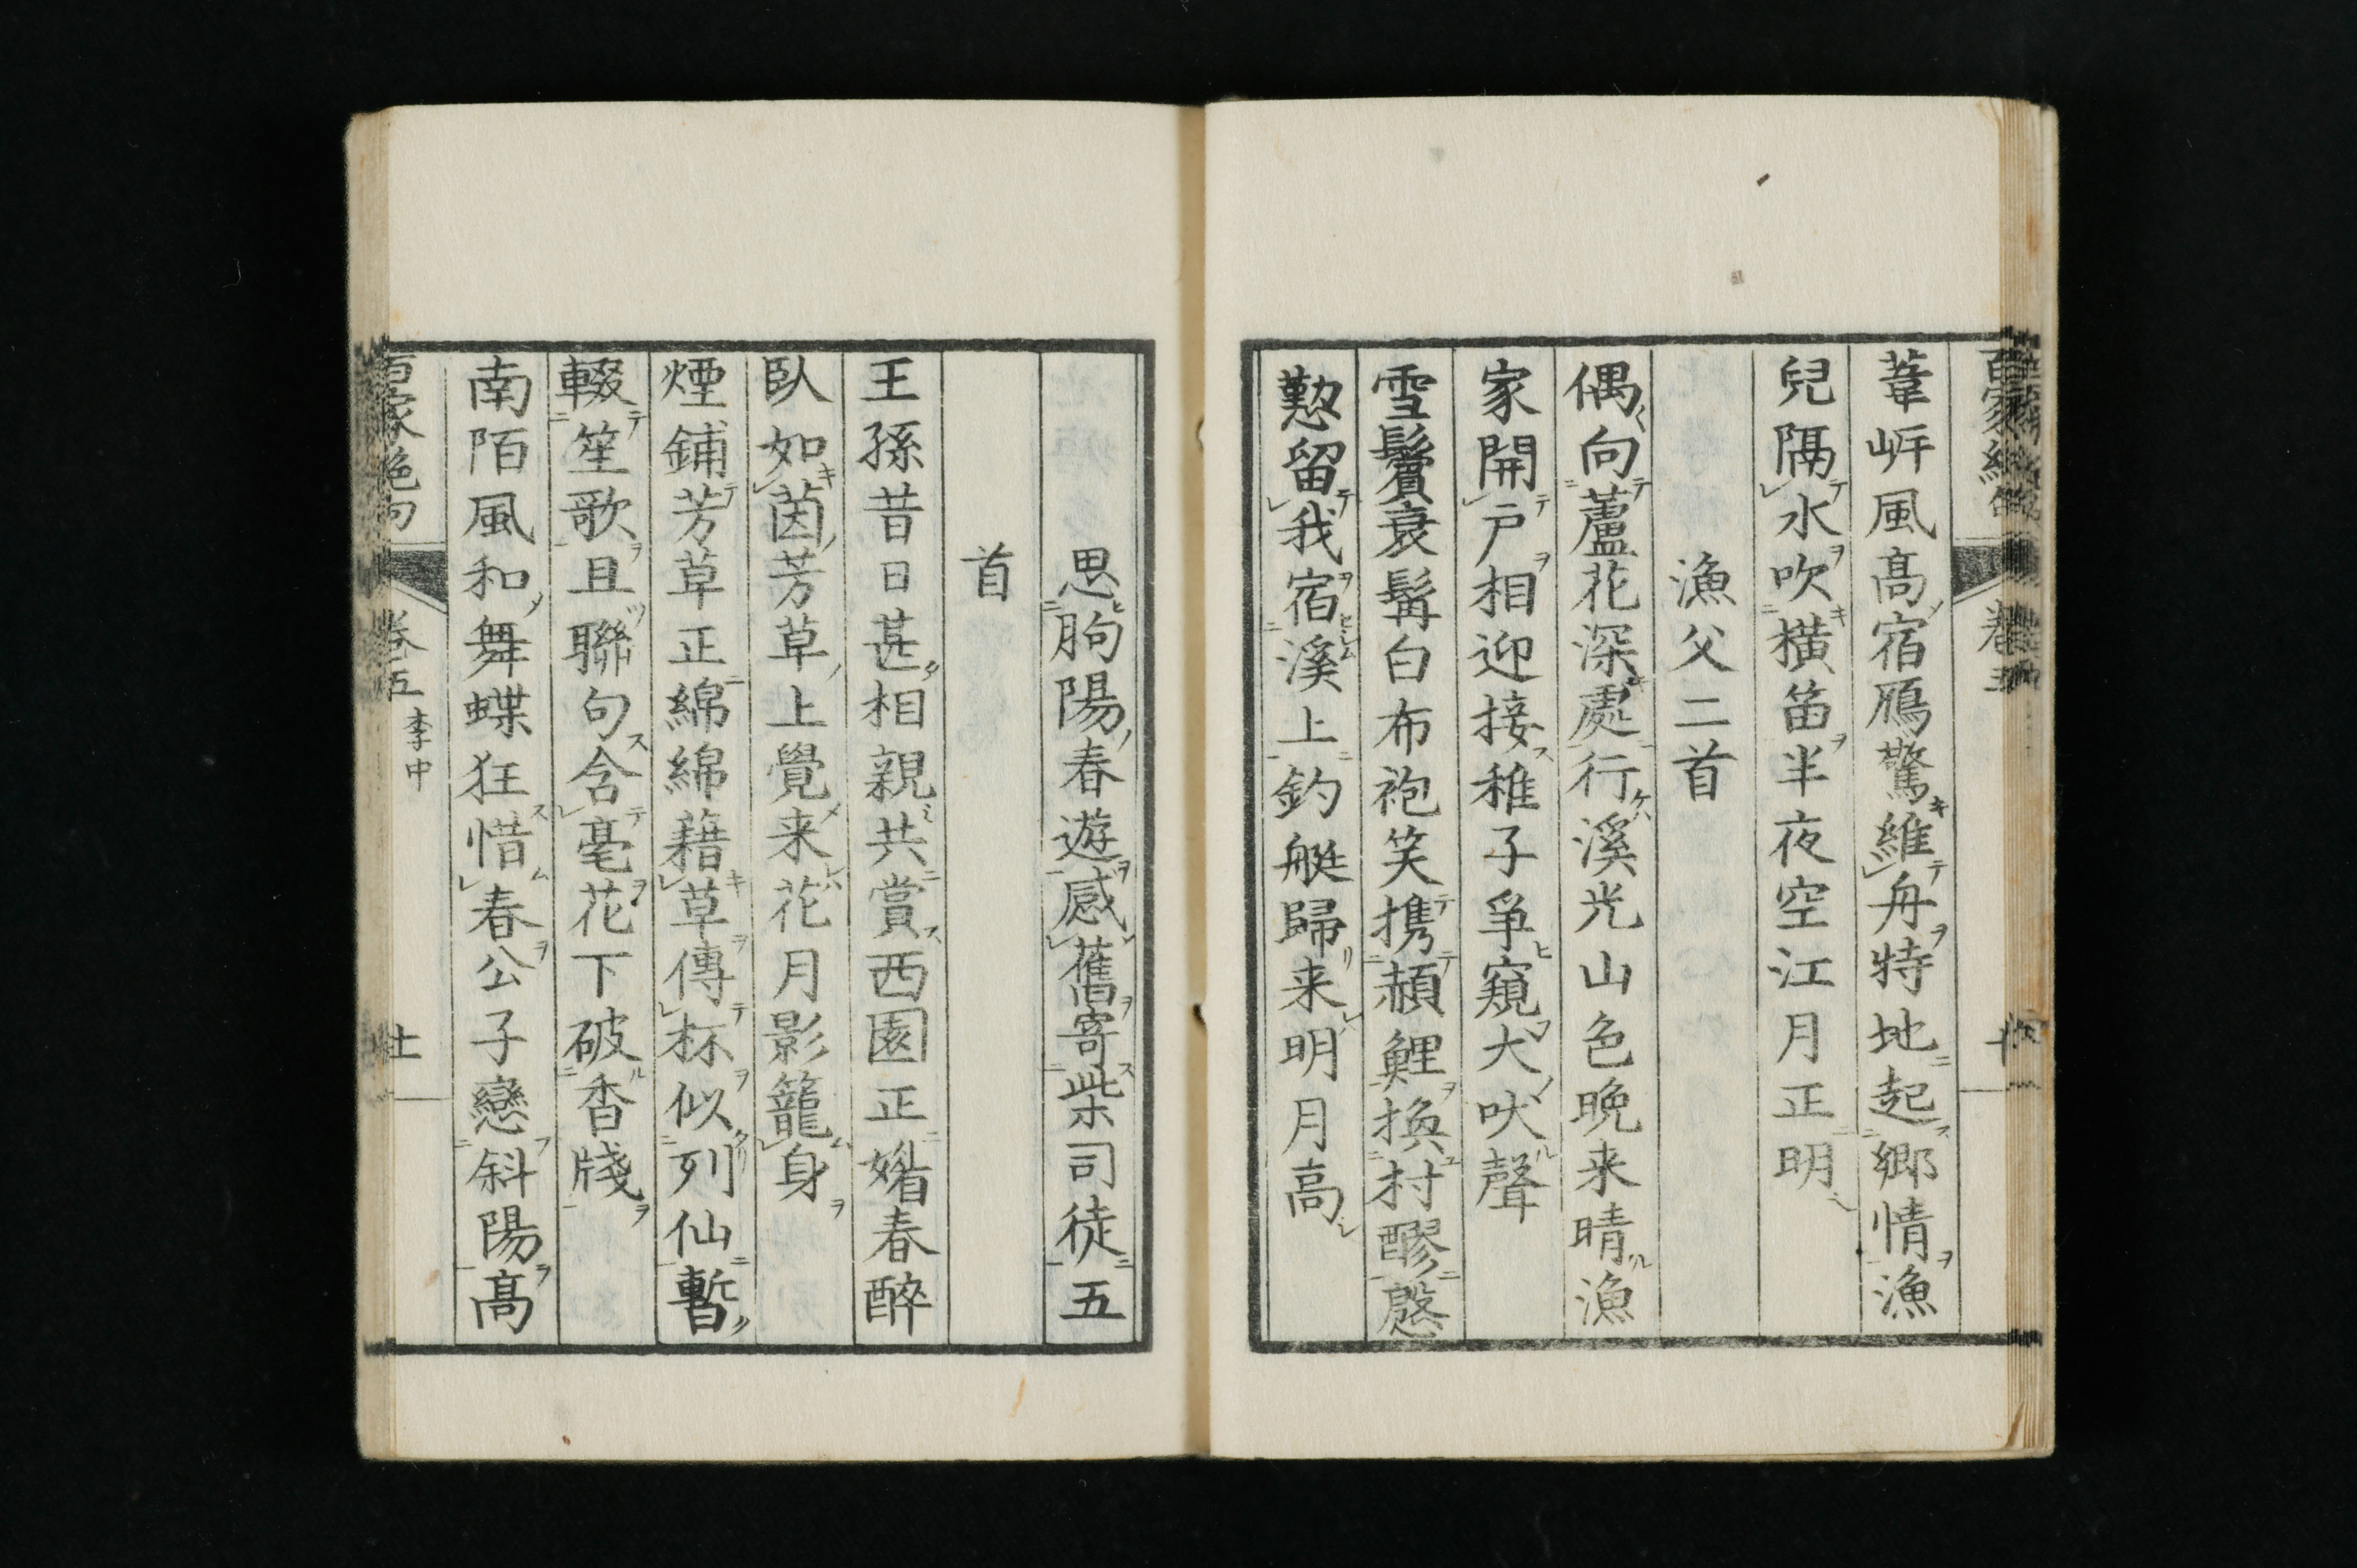 葦岸風髙宿鴈驚維舟特地起郷情漁
兒隔水吹横笛半夜空江月正明
漁父二首
偶向蘆花深處行溪光山色晩来晴漁
家開戸相迎接稚子争窺犬吠聲
雪鬢衰髯白布袍笑携赬鯉換村醪慇
懃留我宿溪上釣艇歸来明月高
思朐陽春遊感舊寄柴司徒五
首
王孫昔日甚相親共賞西園正媚春醉
臥如茵芳草上覺来花月影籠身
煙鋪芳草正綿綿藉草傳杯似列仙暫
輟笙歌且聯句含毫花下破香牋
南陌風和舞蝶狂惜春公子戀斜陽髙
百家絶句
卷五
李中
十一